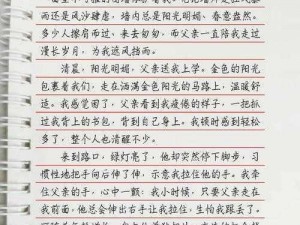 而还是风沙肆虐,墙内总是阳光明媚、春意盎然。
多少人擦肩而过,来去匆匆,而父亲一直陪我走过
漫长岁月,为我遮风挡雨。
清晨,阳光明媚,父亲送我上学。金色的阳光
包裹着我们,走在洒满金色阳光的马路上,温暖舒
适。我感觉困了,父亲看到我疲倦的样子,一把抓
过我背上的书包,背到自己身上。我顿时感到轻松
多了,整个人也清醒不少。
来到路口,绿灯亮了,他却突然停下脚步,习
惯性地把手向后伸了伸,示意我拉住他的手。我牵
住父亲的手,心中一颤:我小时候,只要父亲走在
我前面,他总会伸出右手让我拉住,生怕我跟丢了。